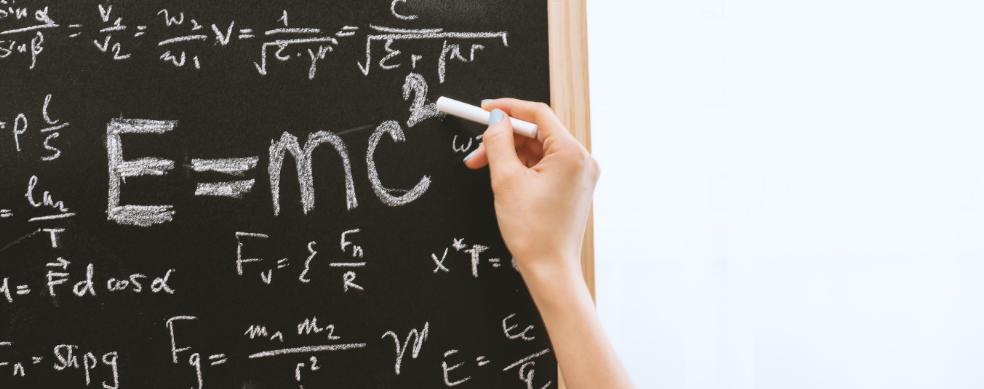 sin α / sin β = v₁ / v₂ = w₂ / w₁ V = 1 / √ε·γr = c / √εr √μr
ρ l / S
E=mc²
w
= ln₂ / T
Fᵥ= { Fₙ / R
x*T=
= F⃗ d cos α
Fg= m₁ m₂ / r²
E= Ec / q